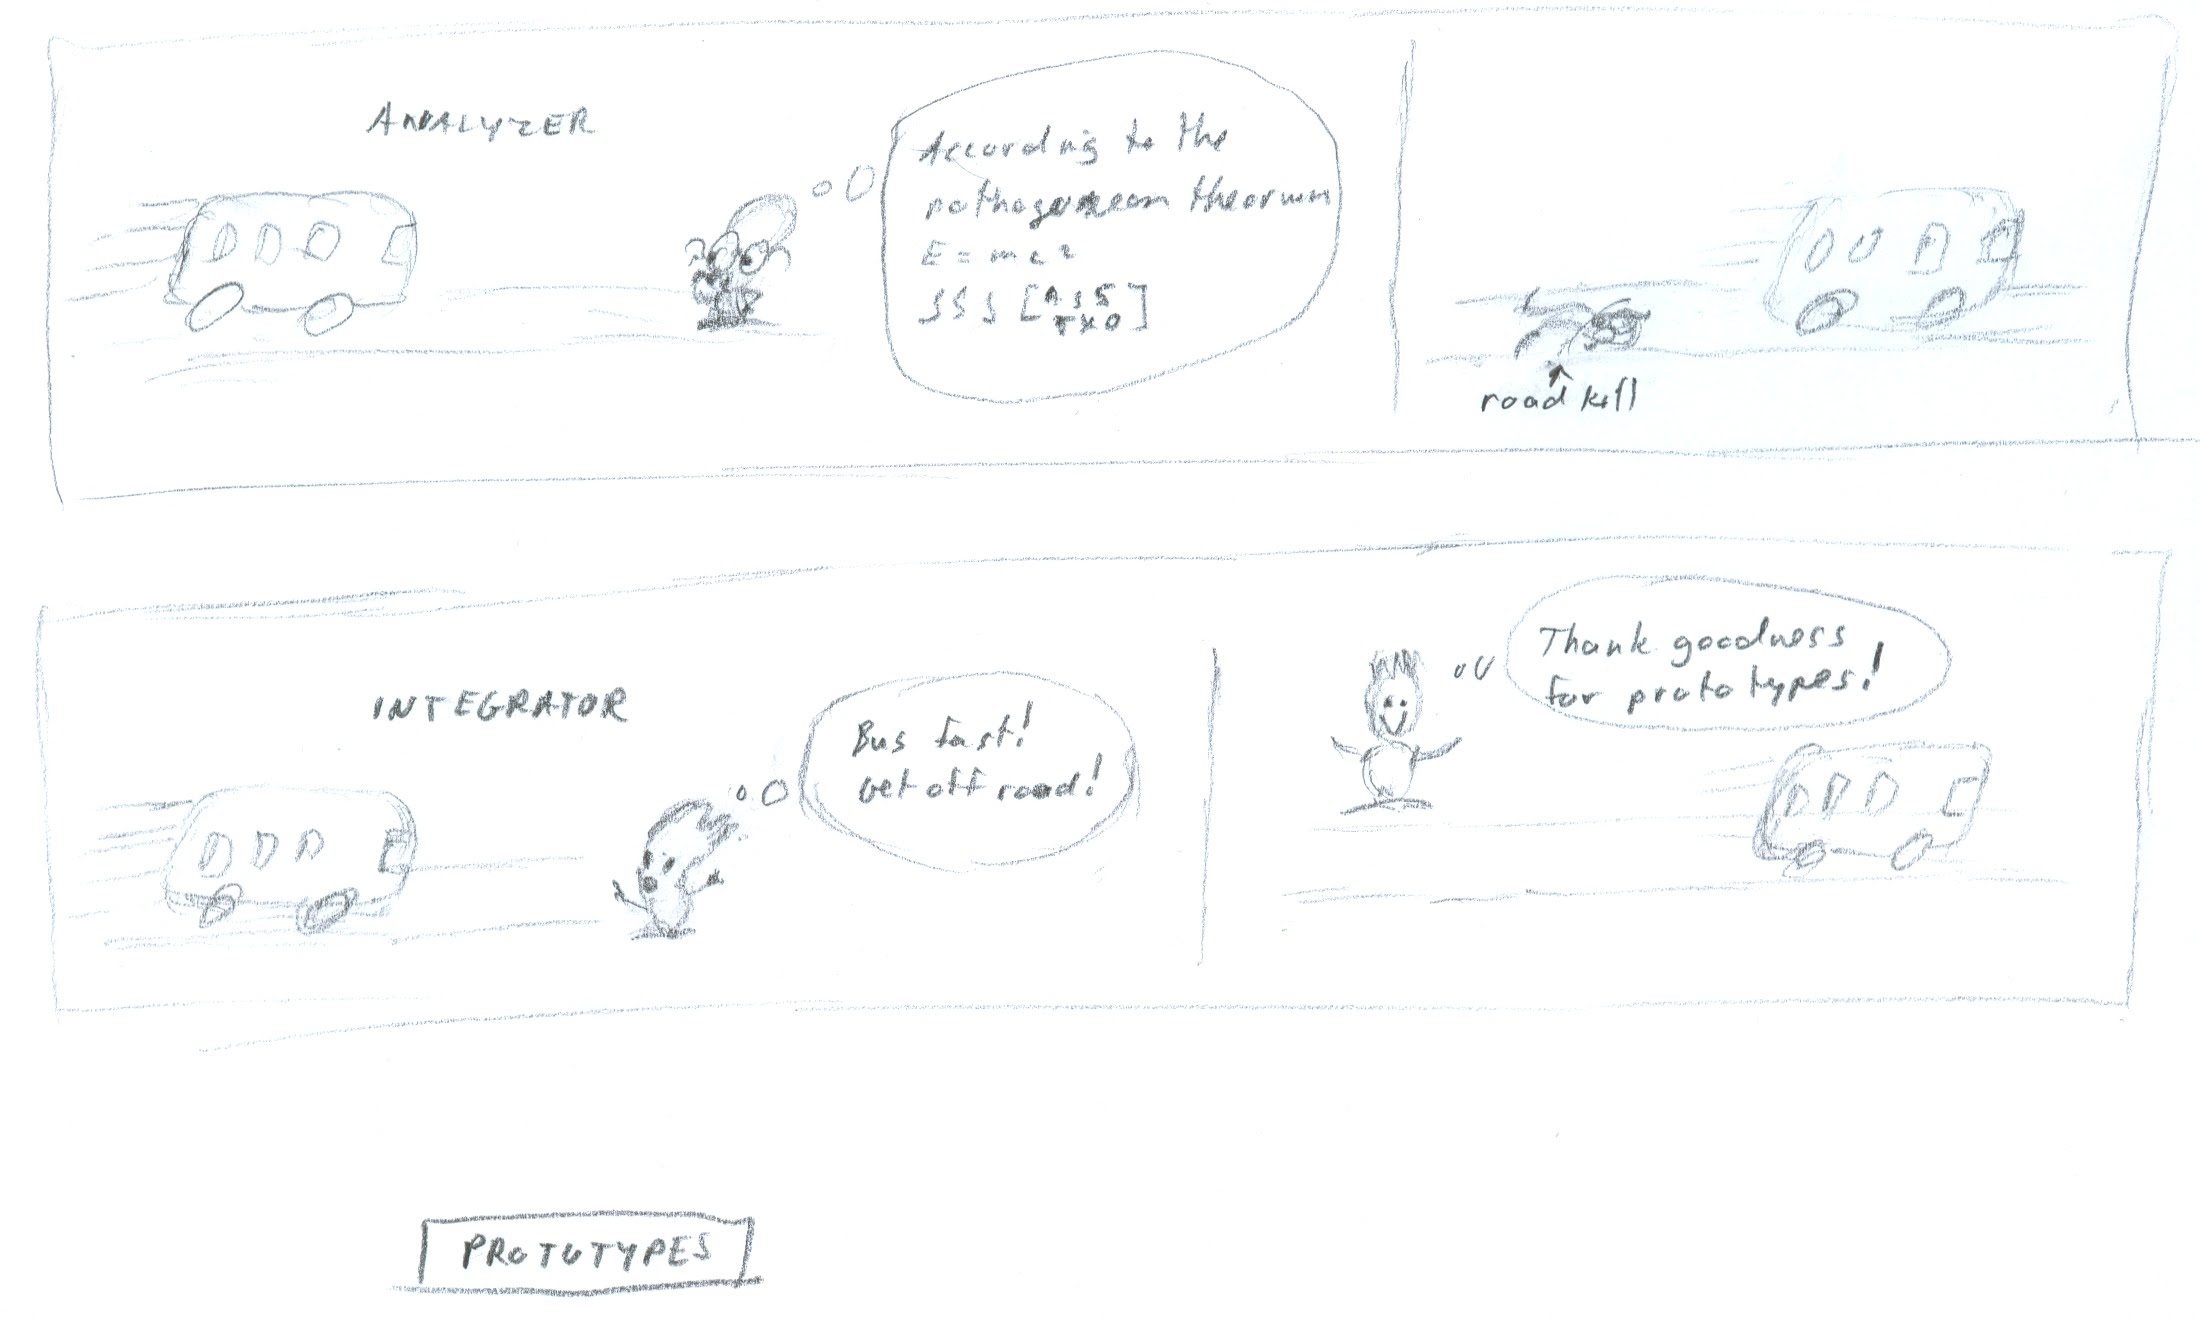 ANALYZER
According to the
pathagorean theorum
E = mc2
∫∫∫ [
road kill
INTEGRATOR
Bus fast!
Get off road!
Thank goodness
for prototypes!
PROTOTYPES